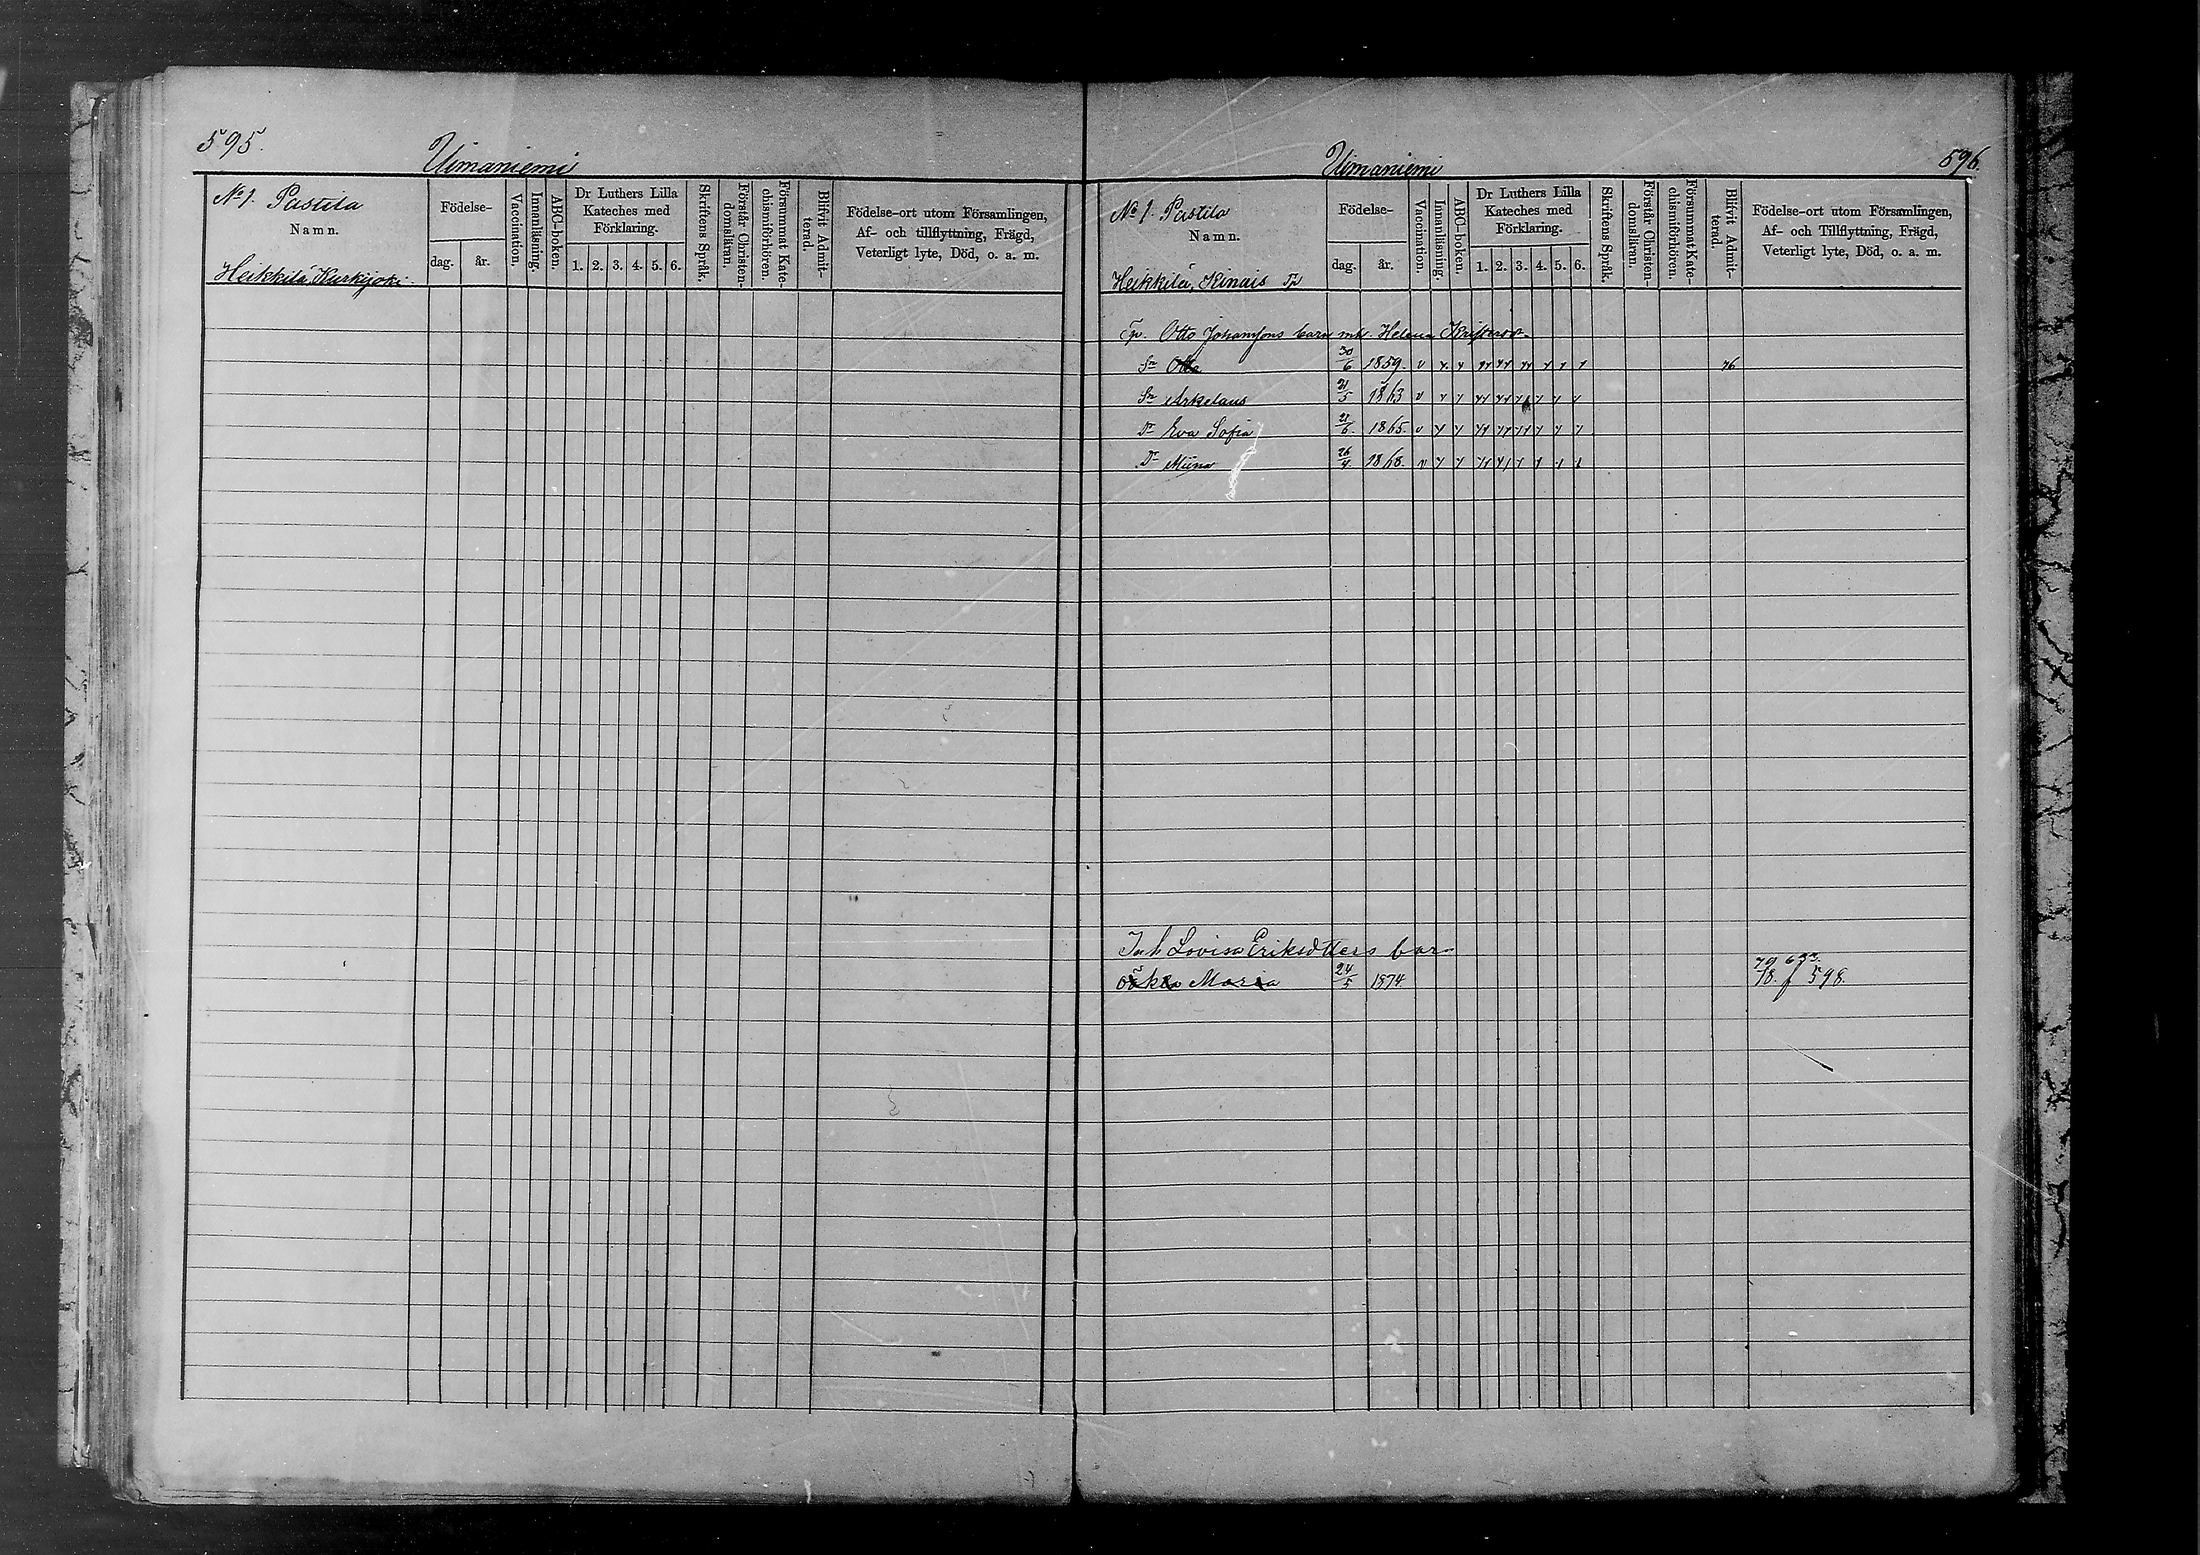 595.
Uimaniemi
No 1. Pastila
Namn.
Heikkilä, Kurkijoki.
Födelse-
dag.
år.
Vaccination.
Innanläsning.
ABC-boken.
Dr Luthers Lilla
Kateches med
Förklaring.
1. 2. 3. 4. 5. 6.
Skriftens Språk.
Förstår Christen-
domsläran.
Försummat Kate-
chismiförhören.
Blifvit Admit-
terad.
Födelse-ort utom Församlingen,
Af- och tillflyttning, Frägd,
Veterligt lyte, Död, o. a. m.
Uimaniemi
596.
No 1. Pastila
Namn.
Heikkilä, Kinais Tp
Födelse-
dag.
år.
Vaccination.
Innanläsning.
ABC-boken.
Dr Luthers Lilla
Kateches med
Förklaring.
1. 2. 3. 4. 5. 6.
Skriftens Språk.
Förstår Christen-
domsläran.
Försummat Kate-
chismiförhören.
Blifvit Admit-
terad.
Födelse-ort utom Församlingen,
Af- och Tillflyttning, Frägd,
Veterligt lyte, Död, o. a. m.
Tp. Otto Johanssons barn m. Helena
Sn Otto 30/6 1859. 76
Sn Arkelaus 21/5 1863
Dr Eva Sofia 21/6 1865.
Dr Miina 26/4 1868.
Inh Lovisa Eriksdotters barn
oäkta Maria 24/5 1874 78. f 598.